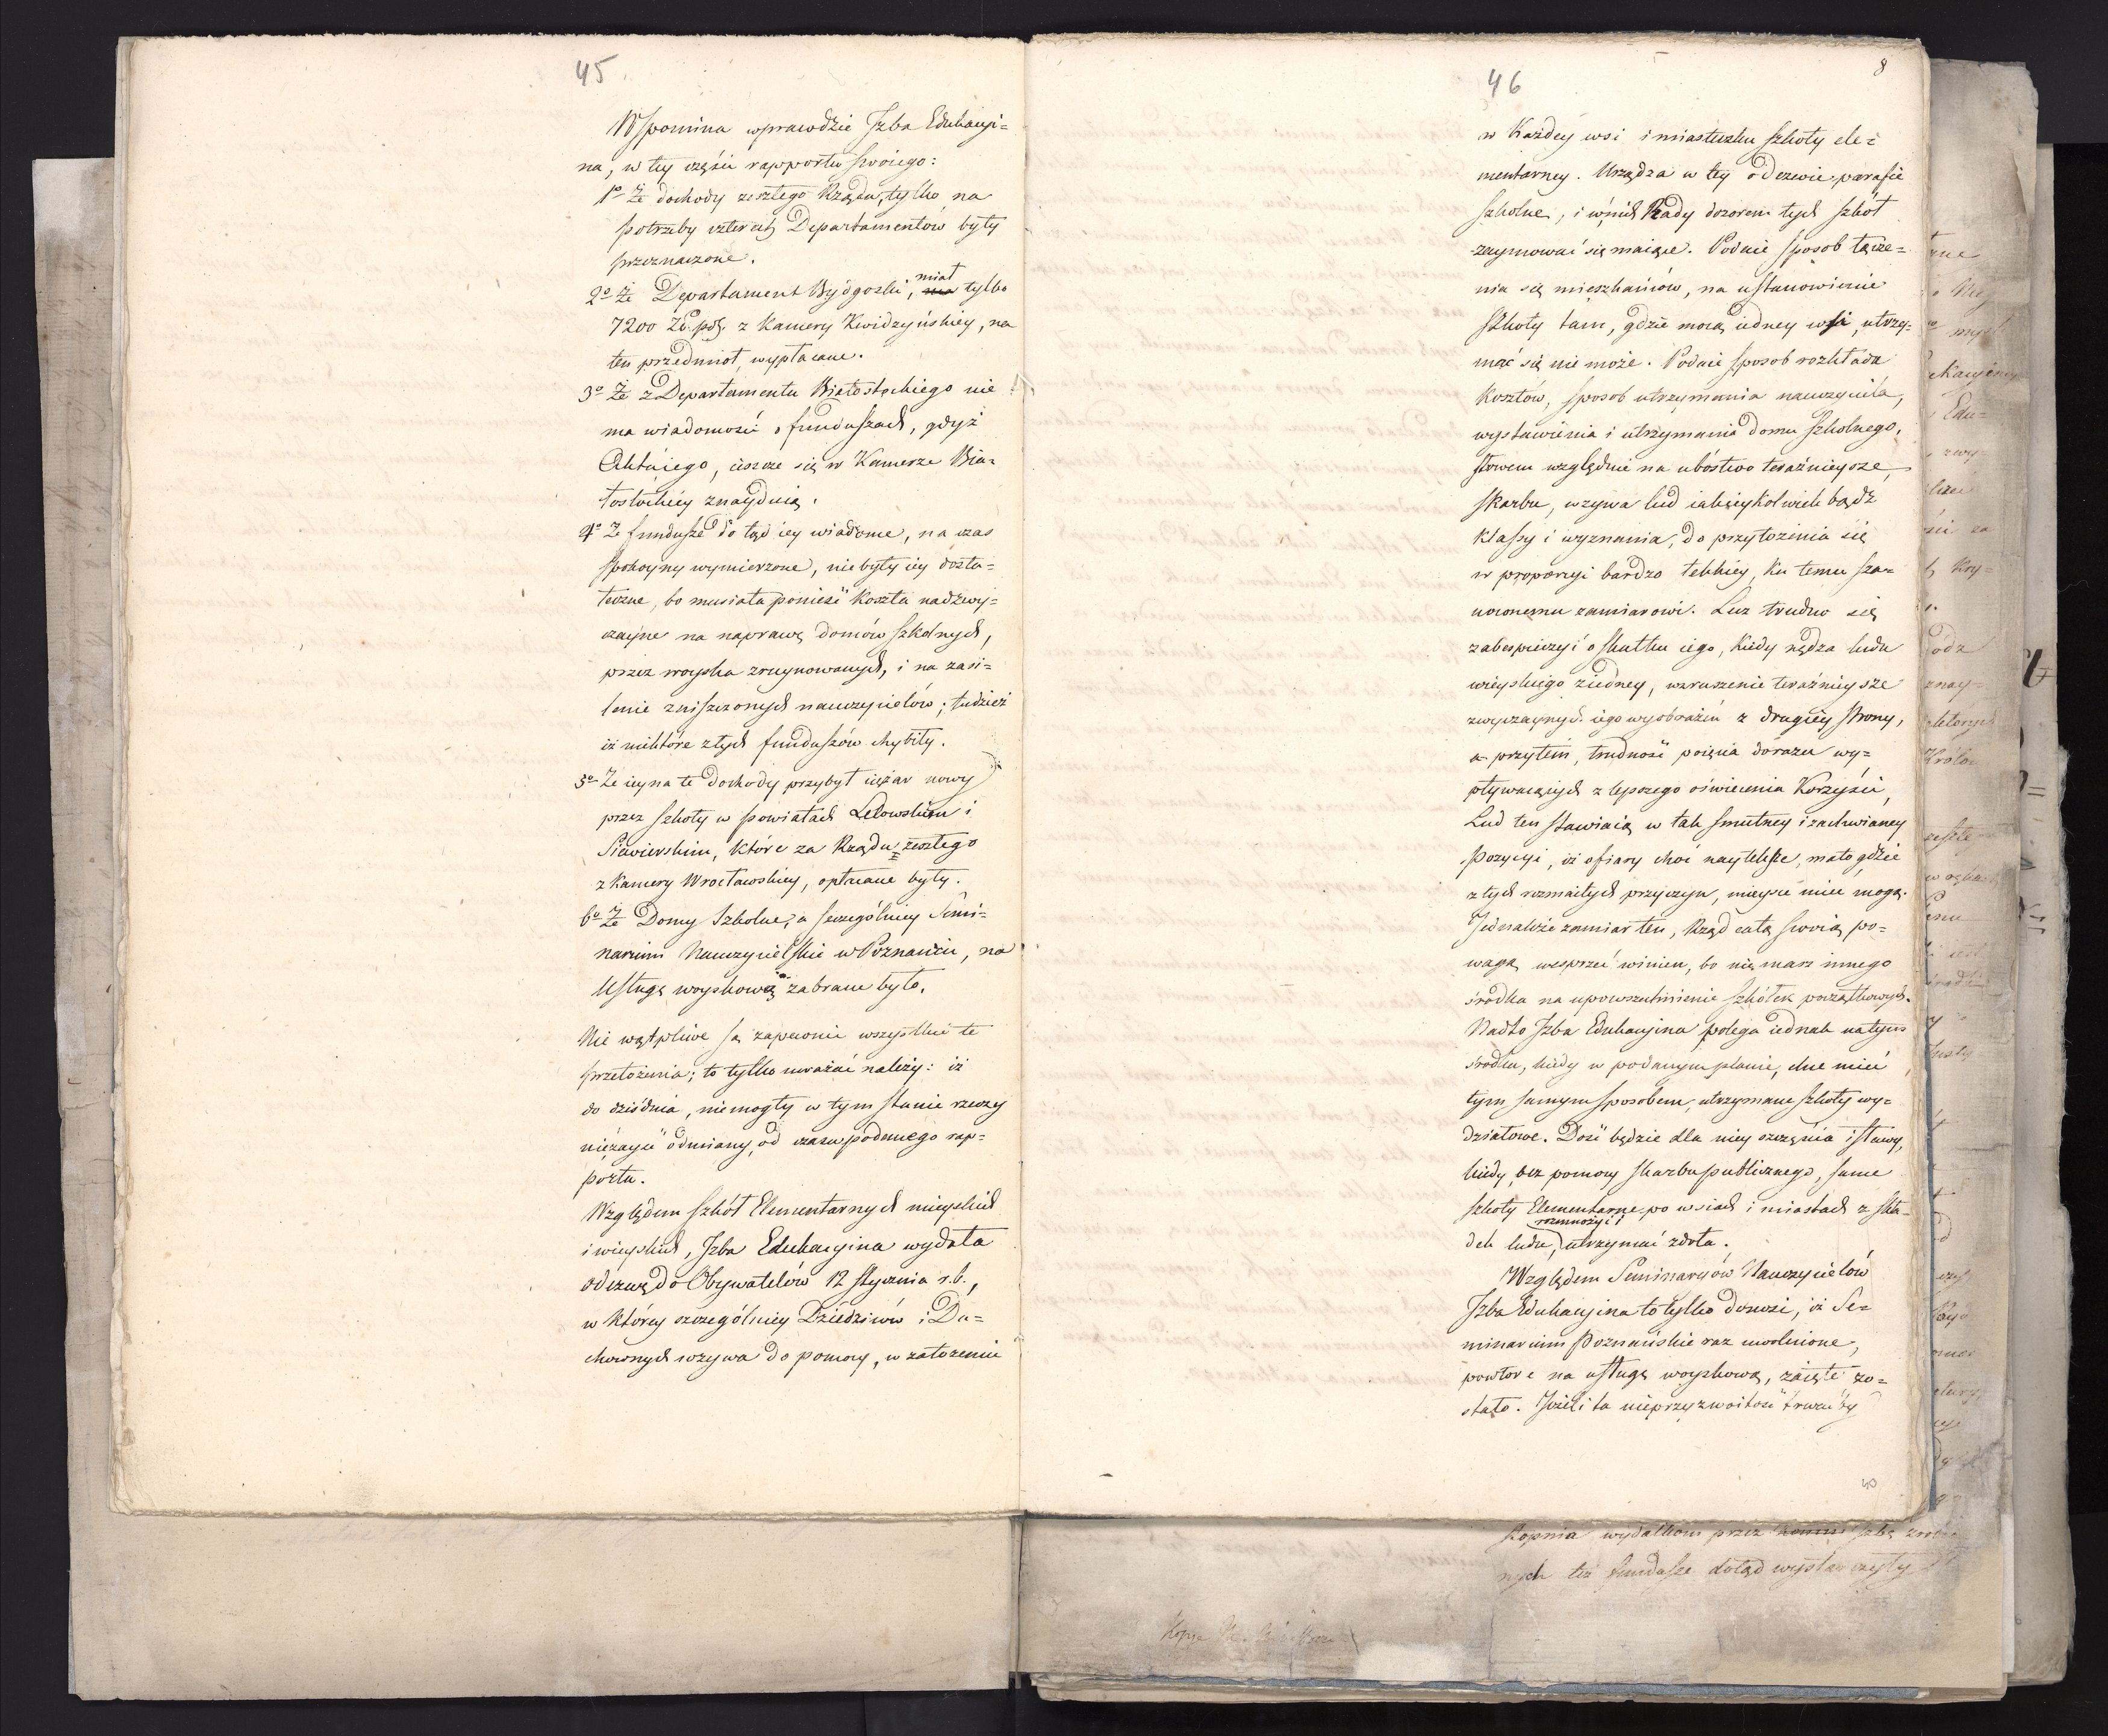 45
Wspomina wprawdzie Jzba Edukacyi=
na, w tey części rapportu swoiego:
1º Że dochody zeszłego Rządu, tylko na
potrzeby czterech Departamentów były
przeznaczone.
2º Że Departament Bydgoski, miał tylko
7200 Zł. pol. z Kamery Kwidzyńskiey, na
ten przedmiot, wypłacane.
3º Że z Departamentu Białostockiego nie
ma wiadomości o funduszach, gdyż
Akta iego, ieszcze się w Kamerze Bia=
łostockiey znayduią.
4º Że fundusze do tąd iey wiadome, na czas
spokoyny wymierzone, nie były iey dosta=
teczne, bo musiała ponieść koszta nadzwy=
czayne na naprawę domów szkolnych,
przez woyska zruynowanych, i na zasi=
lenie zniszczonych nauczycielów; tudzież
iż niektóre z tych funduszów chybiły.
5º Że iey na te dochody przybył ciężar nowy
przez szkoły w powiatach Lelowskim i
Siewierskim, które za Rządu zeszłego
z Kamery Wrocławskiey, opłacane były.
6º Że Domy Szkolne, a szczególniey Semi=
narium Nauczycielskie w Poznaniu, na
usługę woyskową zabrane było.
Nie wątpliwe są zapewnie wszystkie te
przełożenia; to tylko uważać należy: iż
do dziś dnia, nie mogły w tym stanie rzeczy
nie zayść odmiany, od czasu podanego rap=
portu.
Względem szkół Elementarnych mieyskich
i wieyskich, Jzba Edukacyina wydała
odezwę do Obywatelów 12 stycznia r. b.,
w którey szczególniey Dziedziców i Du=
chownych wzywa do pomocy, w założenie
46
8
w każdey wsi i miasteczku szkoły ele=
mentarney. Urządza w tey odezwie, parafie
szkolne, i w nich Rady dozorem tych szkół
zaymować się maiące. Podaie sposob łącze=
nia się mieszkańców, na ustanowienie
szkoły tam, gdzie mocą iedney wsi, utrzy=
mać się nie może. Podaie sposob rozkładu
kosztów, sposob utrzymania nauczyciela,
wystawienia i utrzymania domu szkolnego,
słowem względnie na ubóstwo teraźnieysze
skarbu, wzywa lud iakieykolwiek bądź
klassy i wyznania, do przyłożenia się
w proporcyi bardzo lekkiey, ku temu sza=
nownemu zamiarowi. Lecz trudno się
zabespieczyć o skutku iego, kiedy nędza ludu
wieyskiego z iedney, wzruszenie teraźnieysze
zwyczaynych iego wyobrażeń z drugiey strony,
a przytem, trudność poięcia dorazu wy=
pływaiących z lepszego oświecenia korzyści,
Lud ten stawiaią w tak smutney i zachwianey
pozycyi, iż ofiary choć naylepsze, mało gdzie
z tych rozmaitych przyczyn, mieysce mieć mogą.
Jednakże zamiar ten, Rząd całą swoią po=
wagą wesprzeć winien, bo nie masz innego
środka na upowszechnienie szkółek początkowych.
Nadto Jzba Edukacyina polega iednak na tym
środku, kiedy w podanym planie, chce mieć
tym samym sposobem, utrzymane szkoły wy=
działowe. Dość będzie dla niey szczęścia i sławy,
kiedy, bez pomocy skarbu publicznego, same
szkoły Elementarne po wsiach i miastach z skła=
dek ludu, rozmnożyć i utrzymać zdoła.
Względem Seminaryów Nauczycielów
Jzba Edukacyina to tylko donosi, iż Se=
minarium Poznańskie raz uwolnione,
powtore na usługę woyskową, zaięte zo=
stało. Jeżeli ta nieprzyzwoitość trwać by
40
stopnia wydatkow przez Jzbę
nych też fundusze dotąd wystarczyły